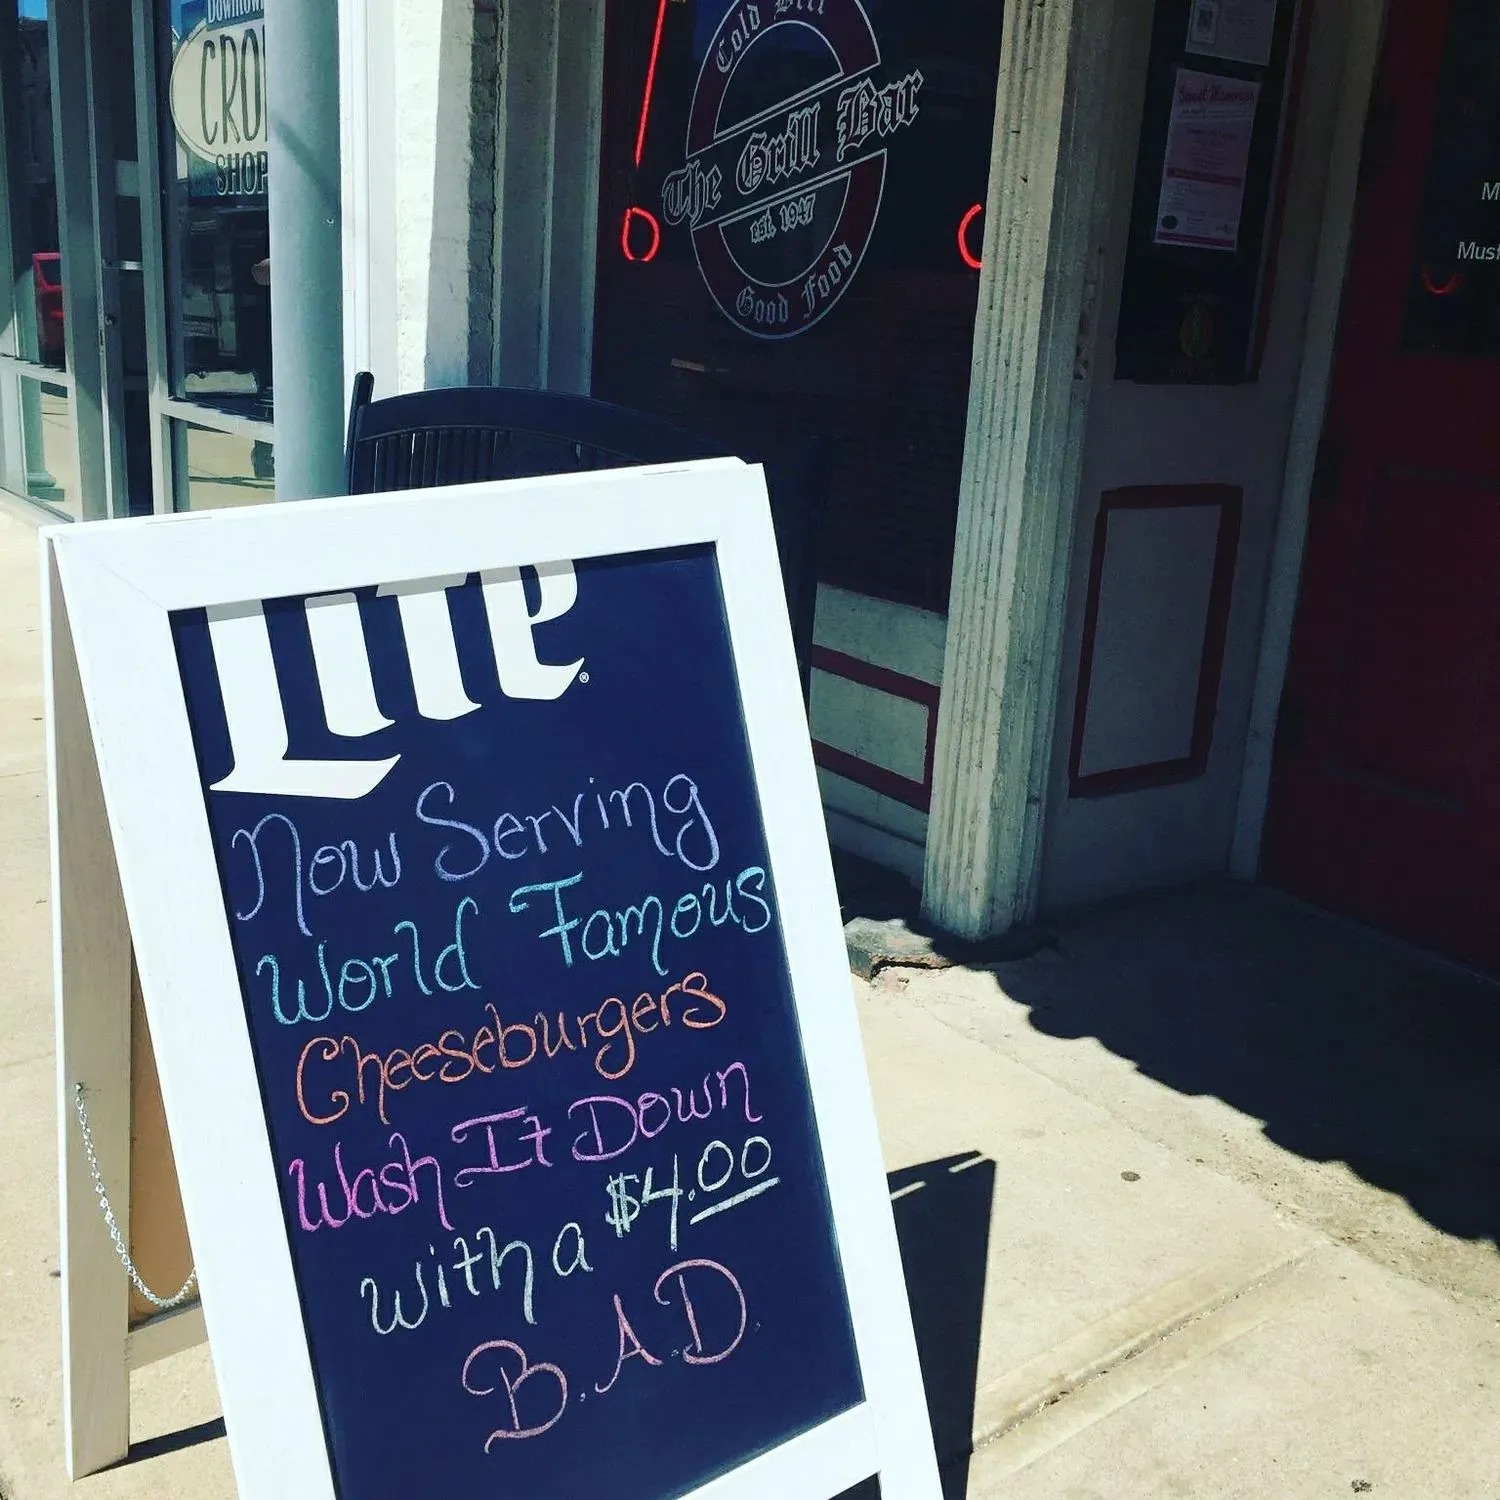 Downtown
CRO
SHOP
Cold Beer
The Grill Bar
est. 1947
Good Food
Sweet Memories
M
Must
Lite
®
Now Serving
World Famous
Cheeseburgers
Wash It Down
with a $4.00
B.A.D.